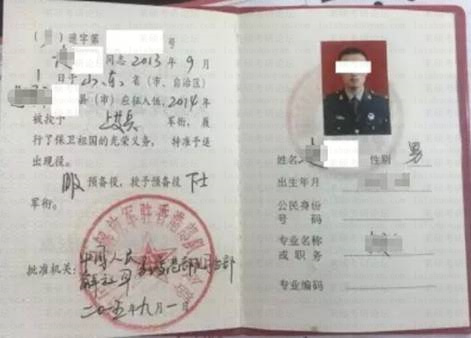 退字第 号
同志 2013 年 9 月
1 日于 山东 省（市、自治区）
县（市）应征入伍，2014年
被授予 上等兵 军衔，履
行了保卫祖国的光荣义务，特准予退
出现役。
服 预备役，授予预备役 下士
军衔。
批准机关：中国人民
解放军驻香港部队司令部
二〇一五年九月一日
姓名 性别 男
出生年月
公民身份
号 码
专业名称
或 职 务
专业编码